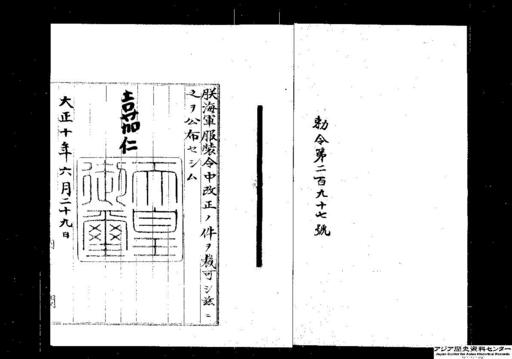 勅令第二百九十七號
朕海軍服裝令中改正ノ件ヲ裁可シ茲ニ
之ヲ公布セシム
嘉仁
天皇
御璽
大正十年六月二十九日
アジア歴史資料センター
Japan Center for Asian Historical Records